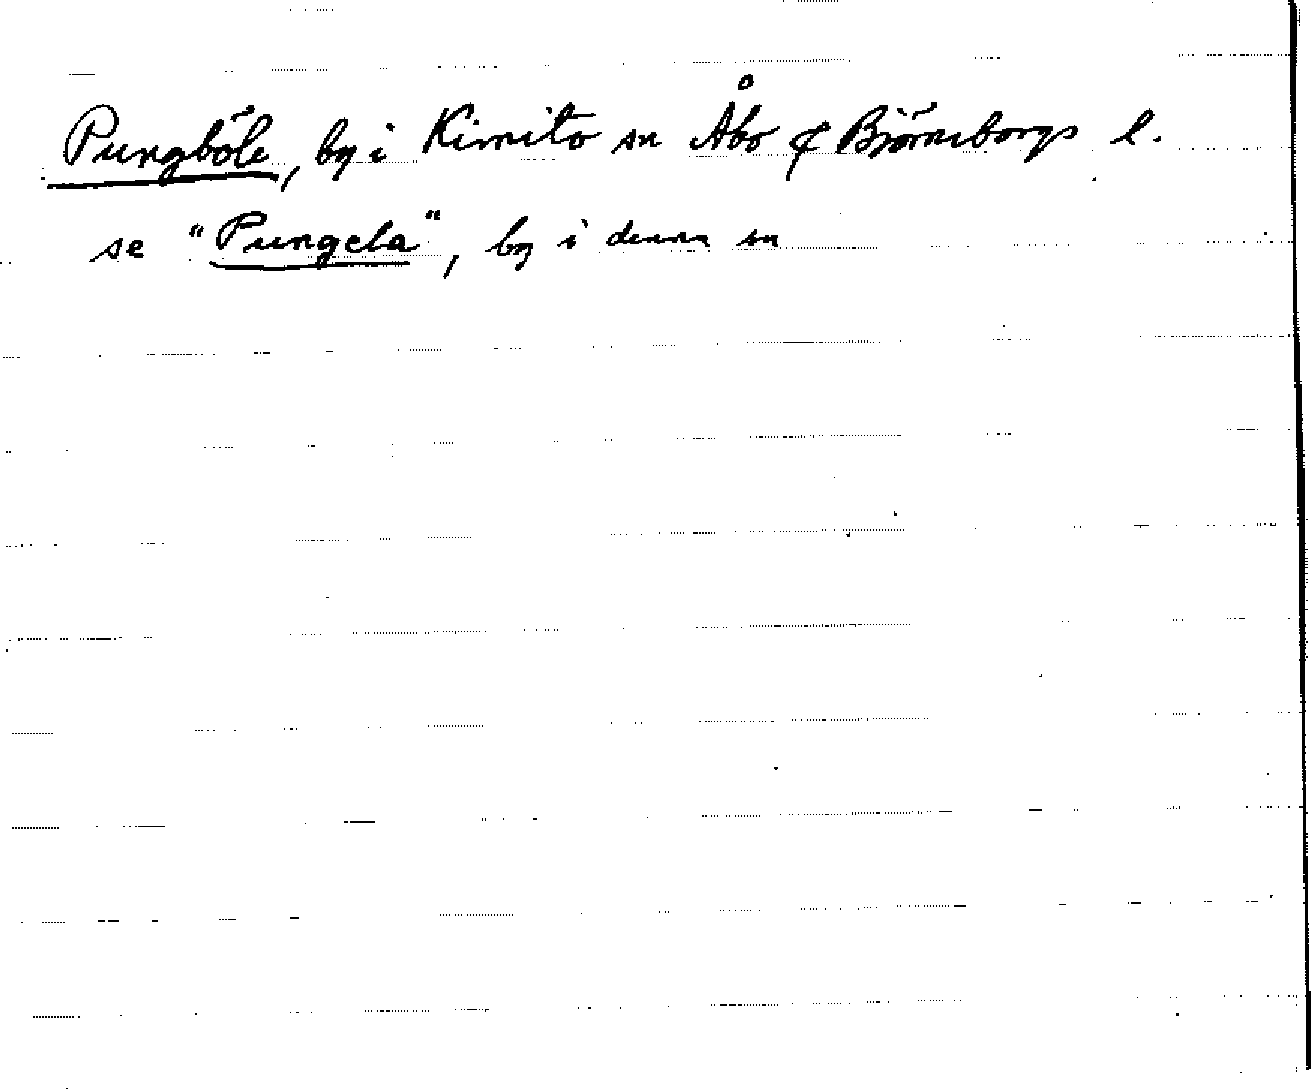 Pungböle, by i Kimito sn Åbo & Björneborgs l.
se "Pungela", by i denna sn